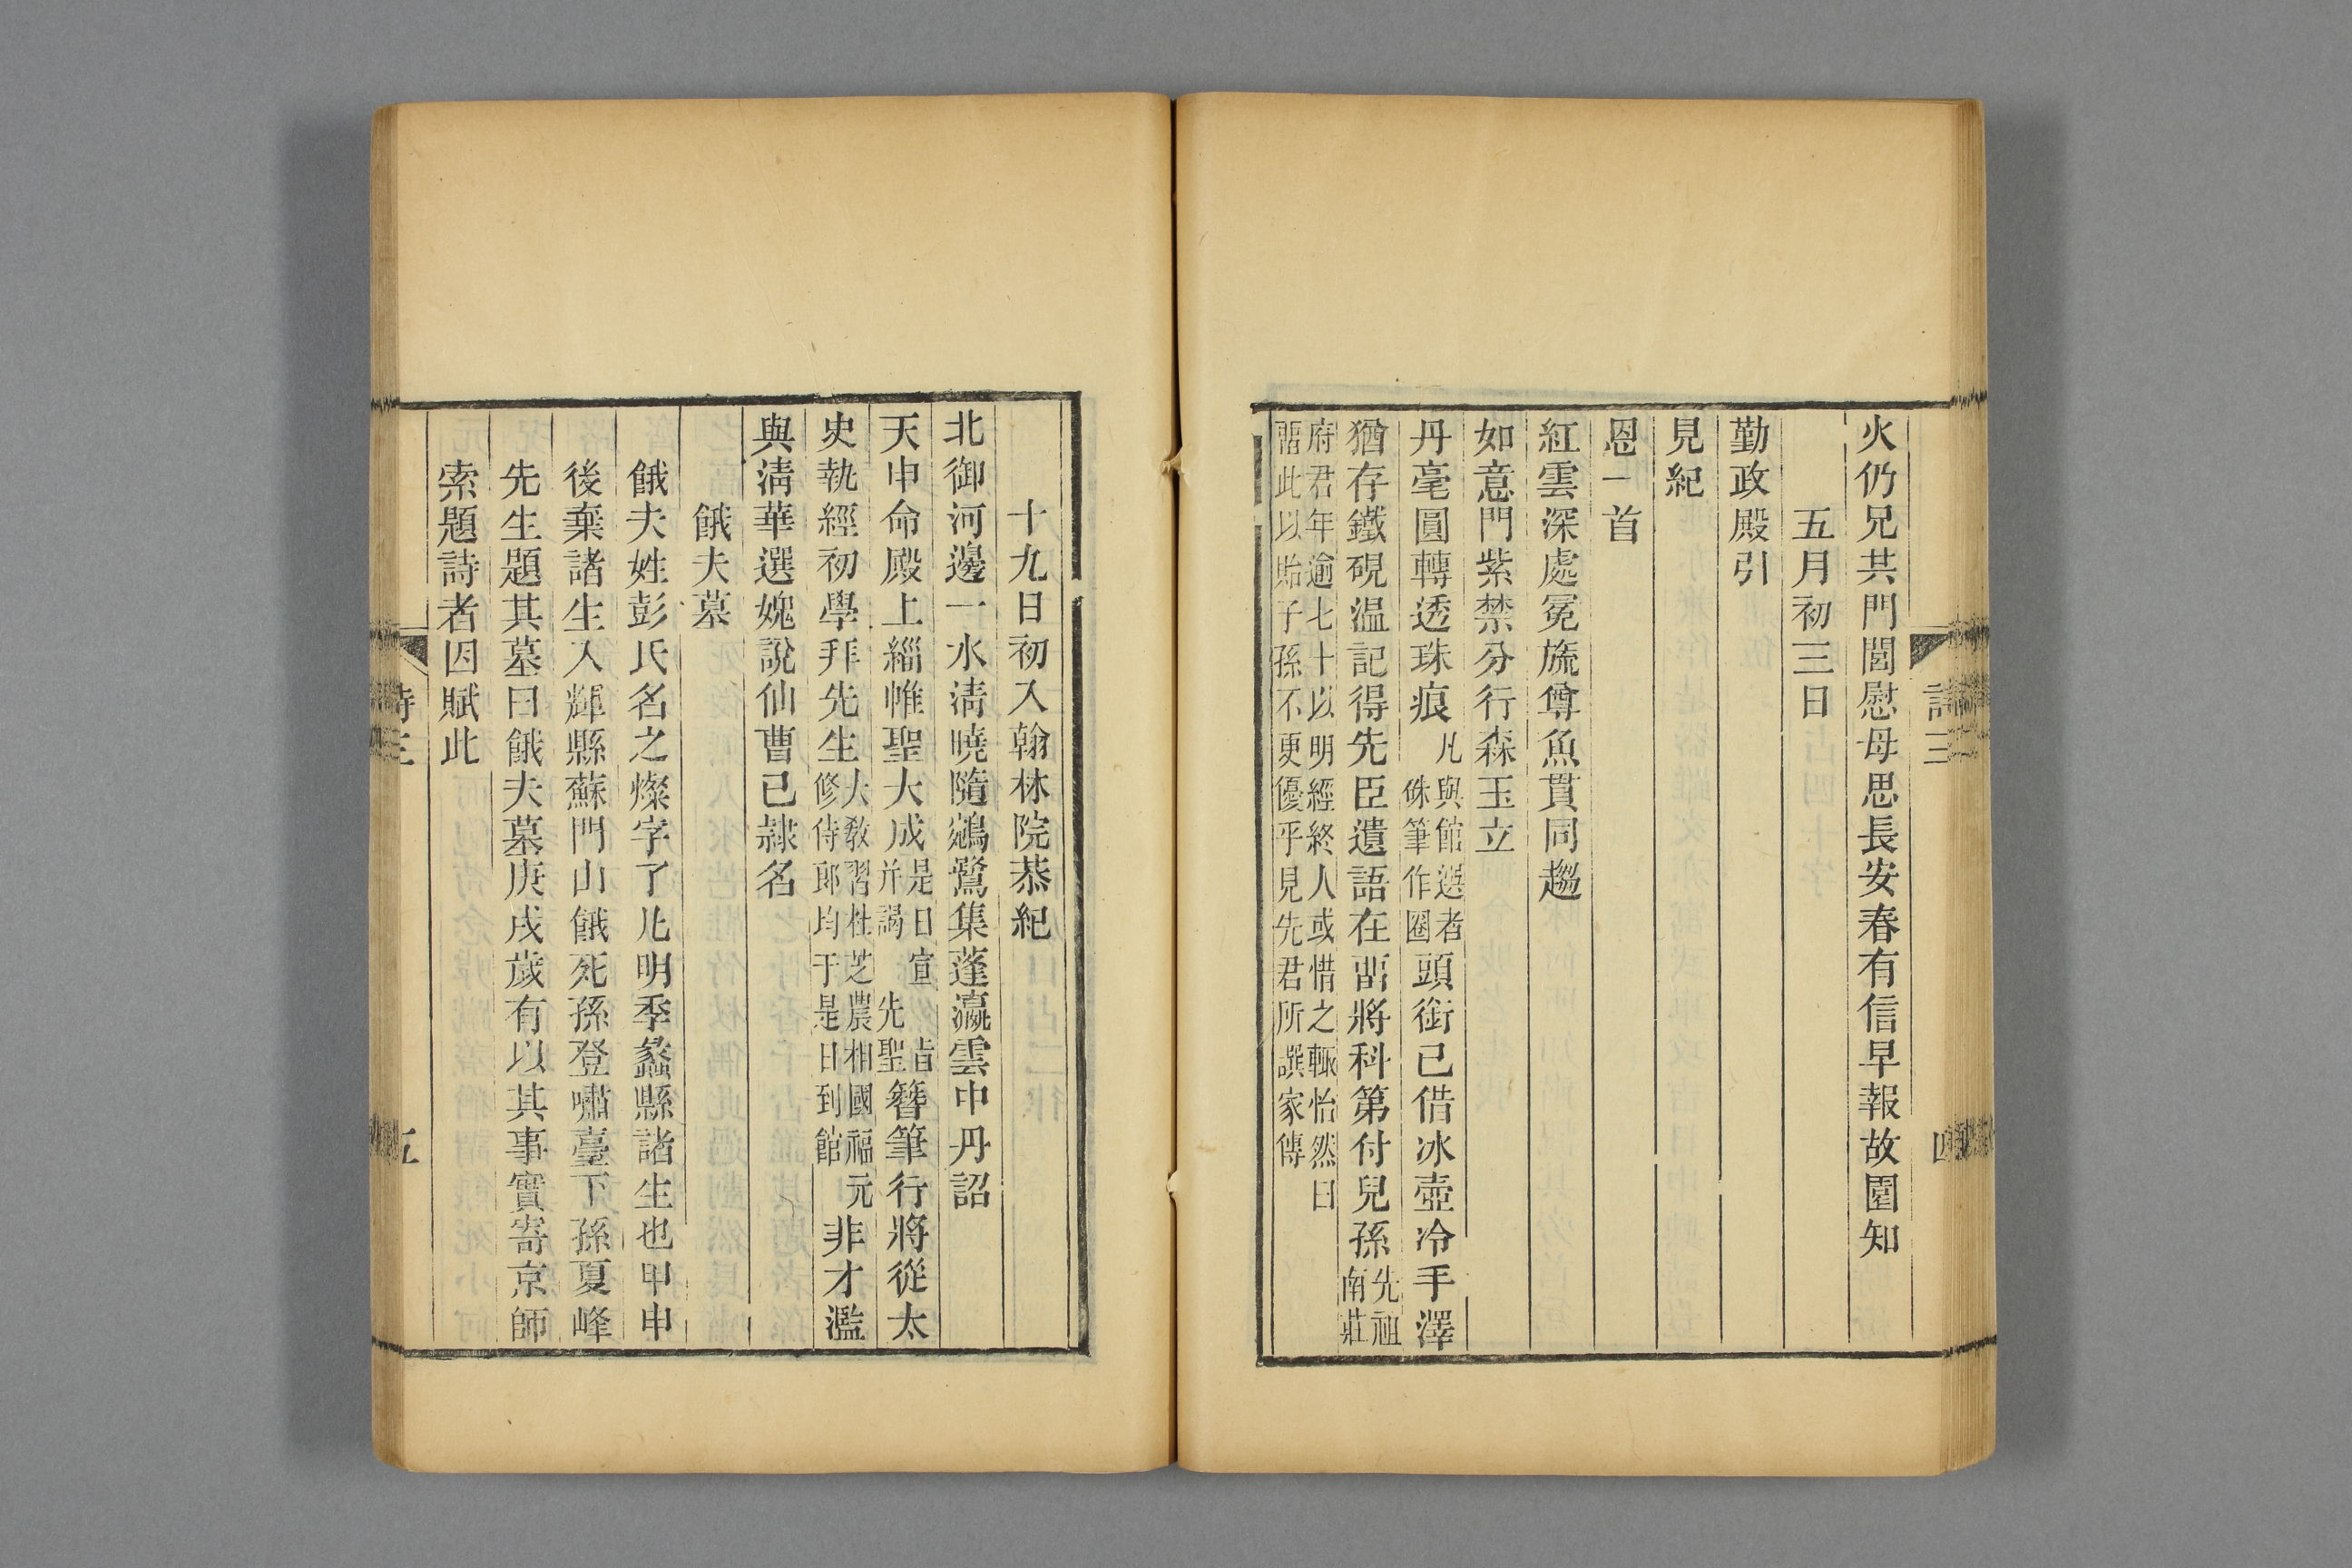 火仍兄共門閭慰母思長安春有信早報故園知
五月初三日
勤政殿引
見紀
恩一首
紅雲深處冕旒尊魚貫同趨
如意門紫禁分行森玉立
丹毫圓轉透珠痕凡與館選者硃筆作圈頭銜已借冰壺冷手澤
猶存鐵硯温記得先臣遺語在畱將科第付兒孫先祖南莊
府君年逾七十以明經終人或惜之輒怡然曰
畱此以貽子孫不更優乎見先君所譔家傳
詩三
四
十九日初入翰林院恭紀
北御河邊一水清曉隨鵷鷺集蓬瀛雲中丹詔
天申命殿上緇帷聖大成是日宣 旨并謁 先聖簪筆行將從太
史執經初學拜先生大教習杜芝農相國福元修侍郎均于是日到館非才濫
與清華選媿說仙曹已隸名
餓夫墓
餓夫姓彭氏名之燦字了凡明季蠡縣諸生也甲申
後棄諸生入輝縣蘇門山餓死孫登嘯臺下孫夏峰
先生題其墓曰餓夫墓庚戌歲有以其事實寄京師
索題詩者因賦此
詩三
五